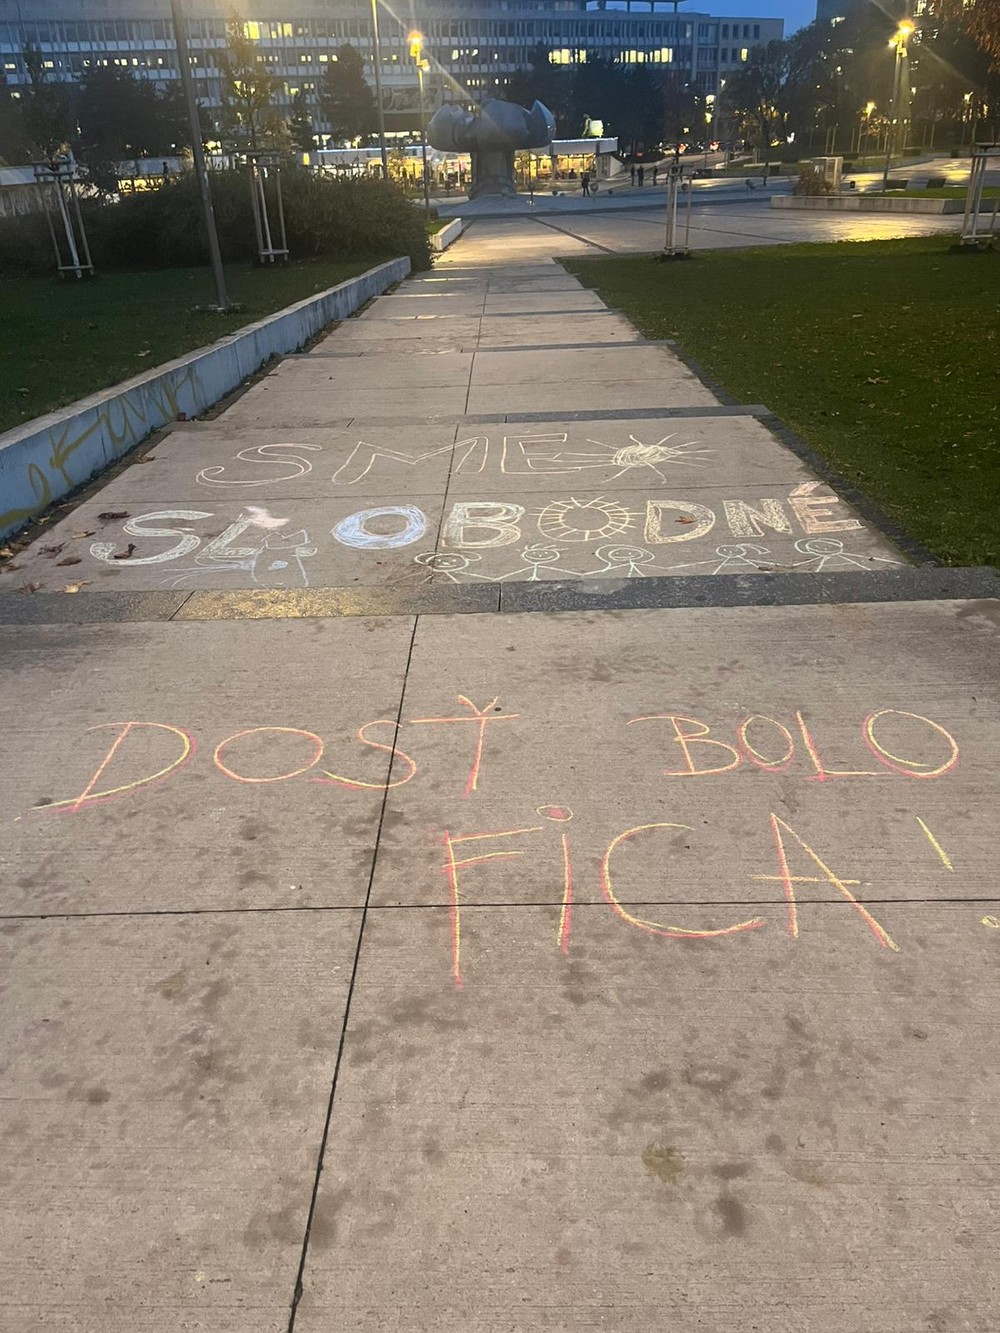 SME
SLOBODNÉ
DOSŤ BOLO
FICA!